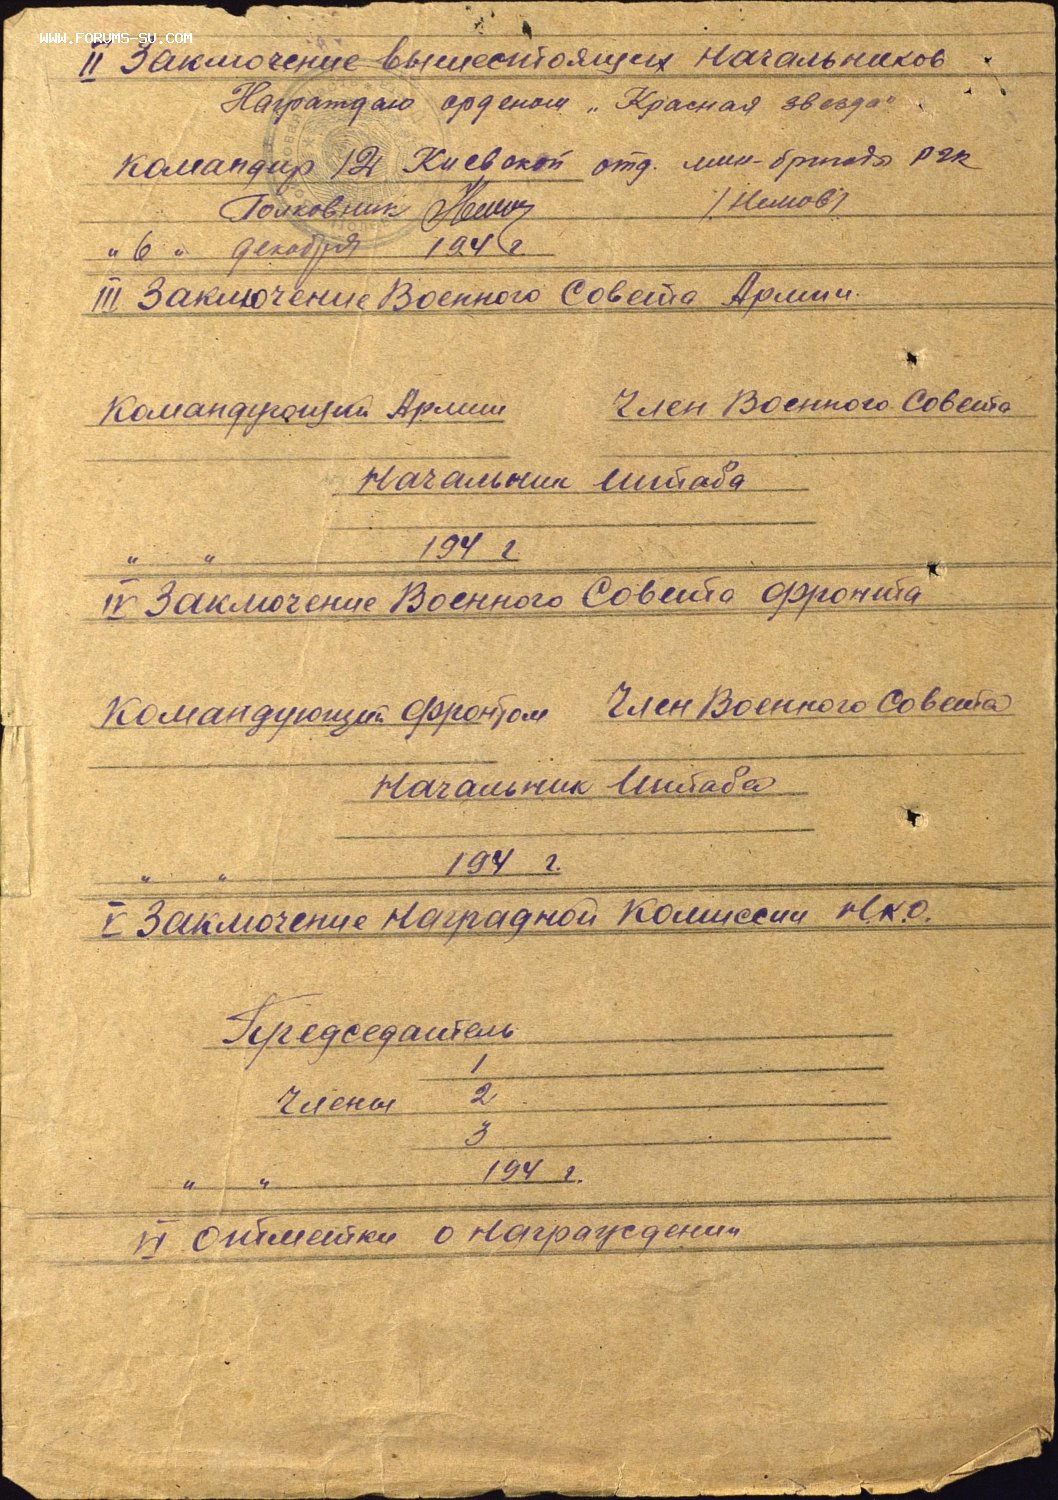 WWW.FORUMS-SU.COM
II Заключение вышестоящих Начальников
Награждаю орденом „Красная звезда"
Командир 12 Киевской отд. мин-бригады РГК
Полковник /Немов/
„6" декабря 194 г.
III Заключение Военного Совета Армии.
Командующий Армии Член Военного Совета
Начальник Штаба
" " 194 г
IV Заключение Военного Совета Фронта
Командующий Фронтом Член Военного Совета
Начальник Штаба
" " 194 г.
V Заключение Наградной Комиссии НК.О.
Председатель
1
Члены 2
3
" " 194 г.
VI Отметки о Награждении